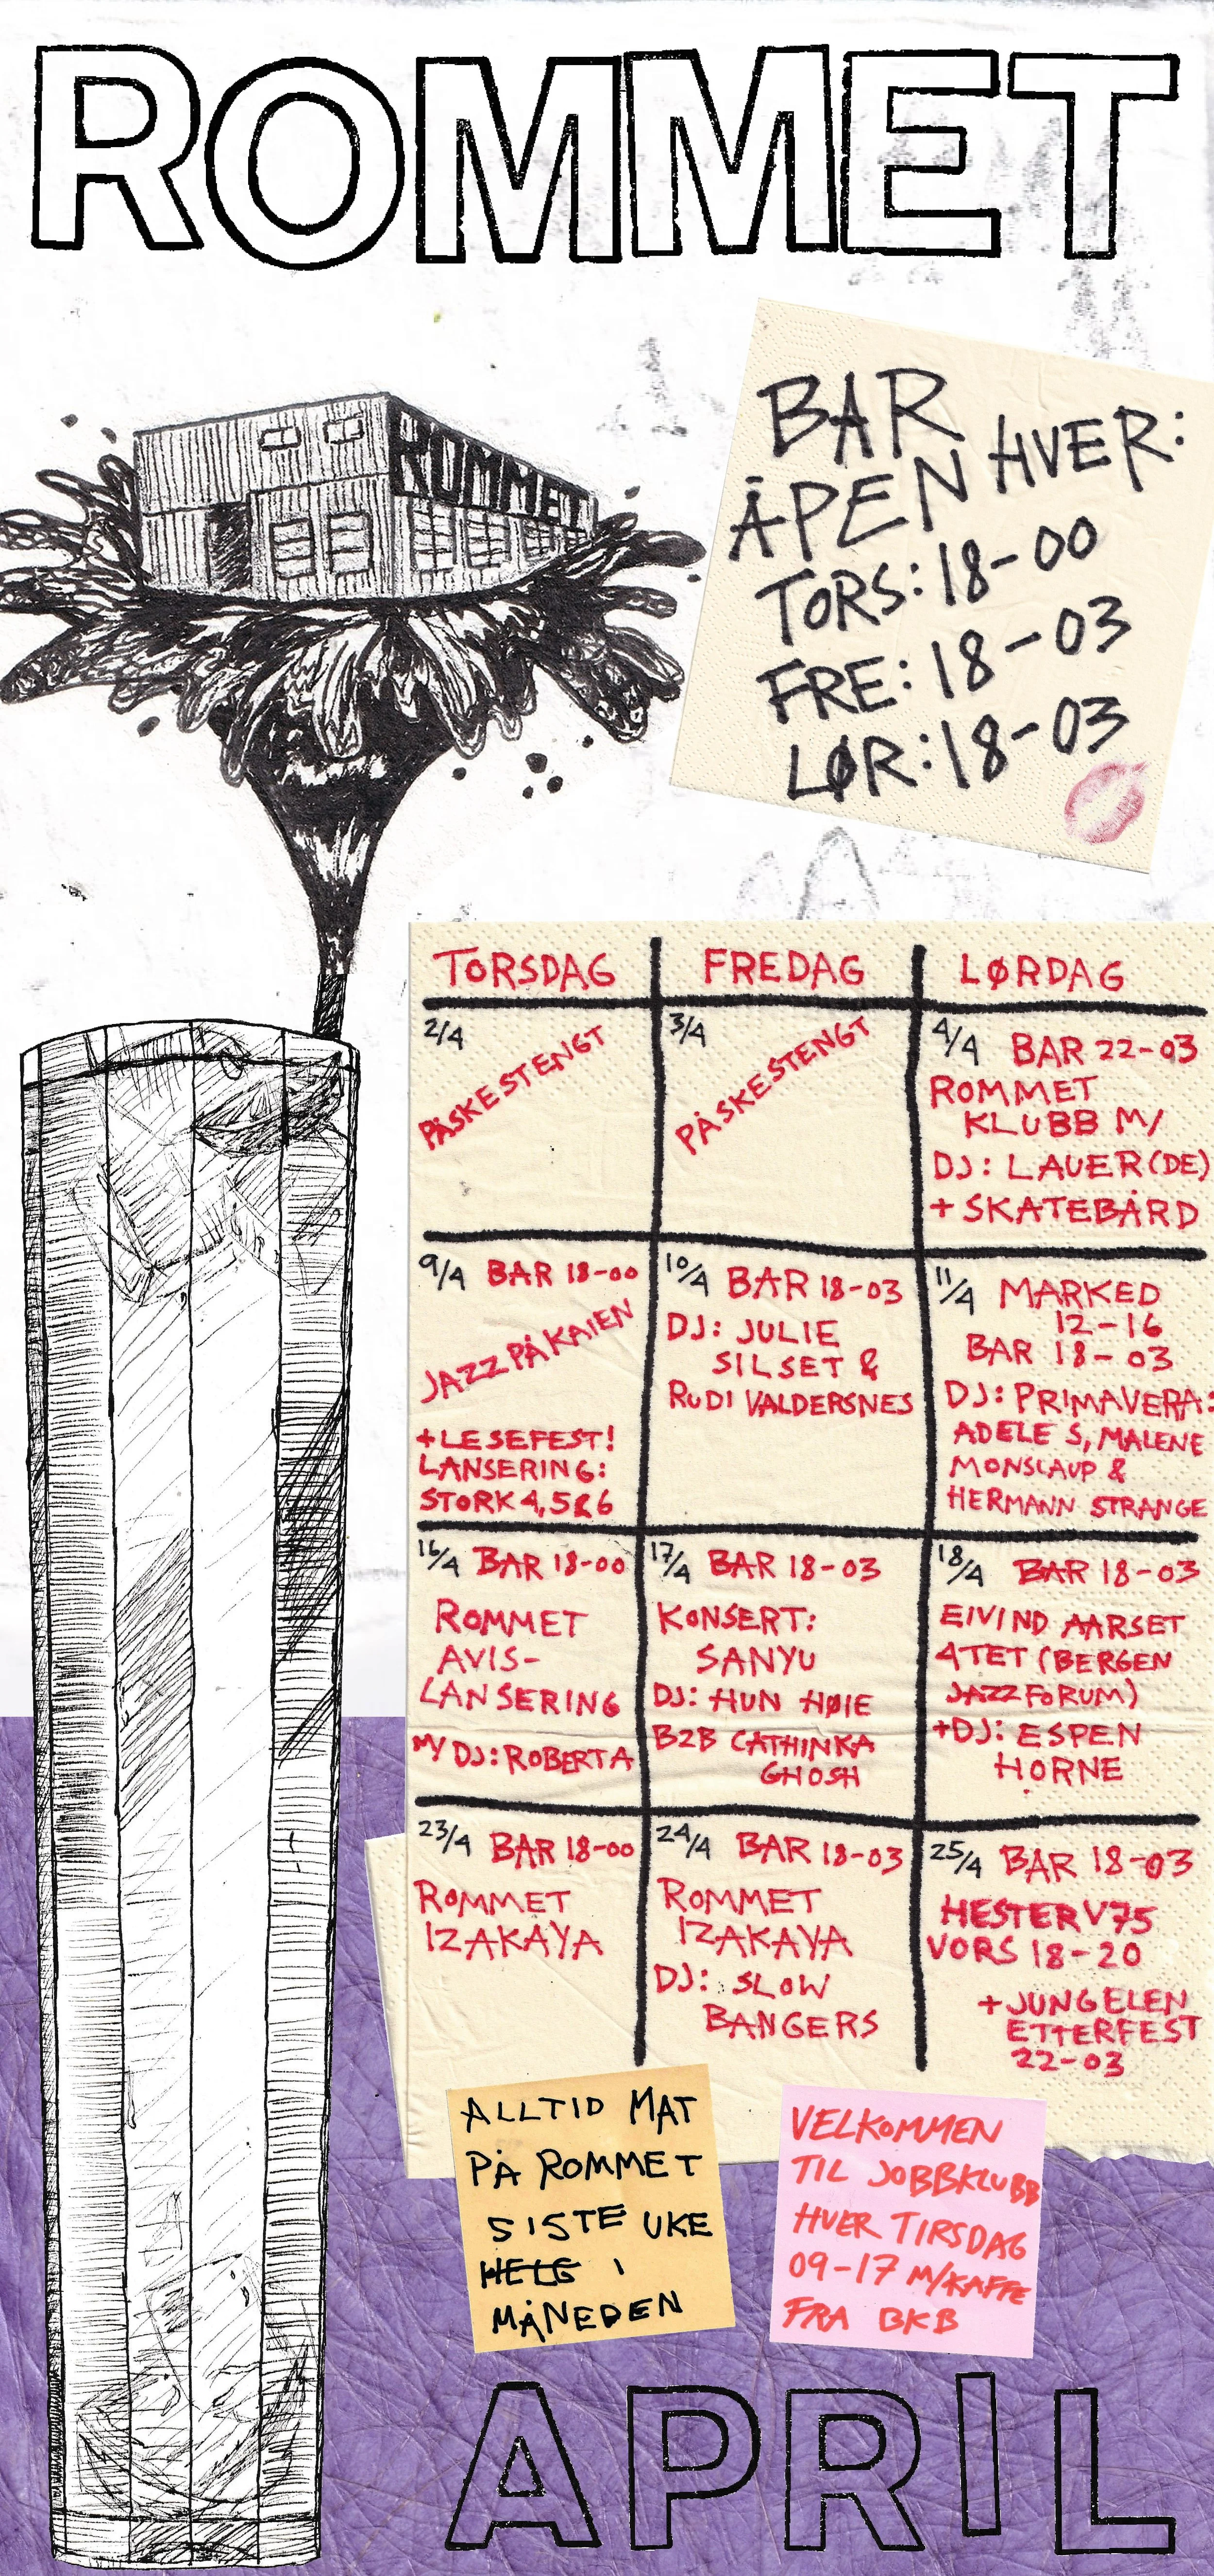 ROMMET
ROMMET
BAR
ÅPEN HVER:
TORS: 18-00
FRE: 18-03
LØR: 18-03
TORSDAG
FREDAG
LØRDAG
2/4
PÅSKESTENGT
3/4
PÅSKESTENGT
4/4 BAR 22-03
ROMMET
KLUBB M/
DJ: LAUER (DE)
+ SKATEBÅRD
9/4 BAR 18-00
JAZZ PÅ KAIEN
+LESEFEST!
LANSERING:
STORK 4, 5 & 6
10/4 BAR 18-03
DJ: JULIE
SILSET &
RUDI VALDERSNES
11/4 MARKED
12-16
BAR 18-03
DJ: PRIMAVERA:
ADELE S, MALENE
MONSLAUP &
HERMANN STRANGE
16/4 BAR 18-00
ROMMET
AVIS-
LANSERING
M/ DJ: ROBERTA
17/4 BAR 18-03
KONSERT:
SANYU
DJ: HUN HØIE
B2B CATHINKA
GHOSH
18/4 BAR 18-03
EIVIND AARSET
4TET (BERGEN
JAZZFORUM)
+DJ: ESPEN
HORNE
23/4 BAR 18-00
ROMMET
IZAKAYA
24/4 BAR 18-03
ROMMET
IZAKAYA
DJ: SLOW
BANGERS
25/4 BAR 18-03
HESTER V75
VORS 18-20
+ JUNGELEN
ETTERFEST
22-03
ALLTID MAT
PÅ ROMMET
SISTE UKE
HELG I
MÅNEDEN
VELKOMMEN
TIL JOBBKLUBB
HVER TIRSDAG
09-17 M/KAFFE
FRA BKB
APRIL